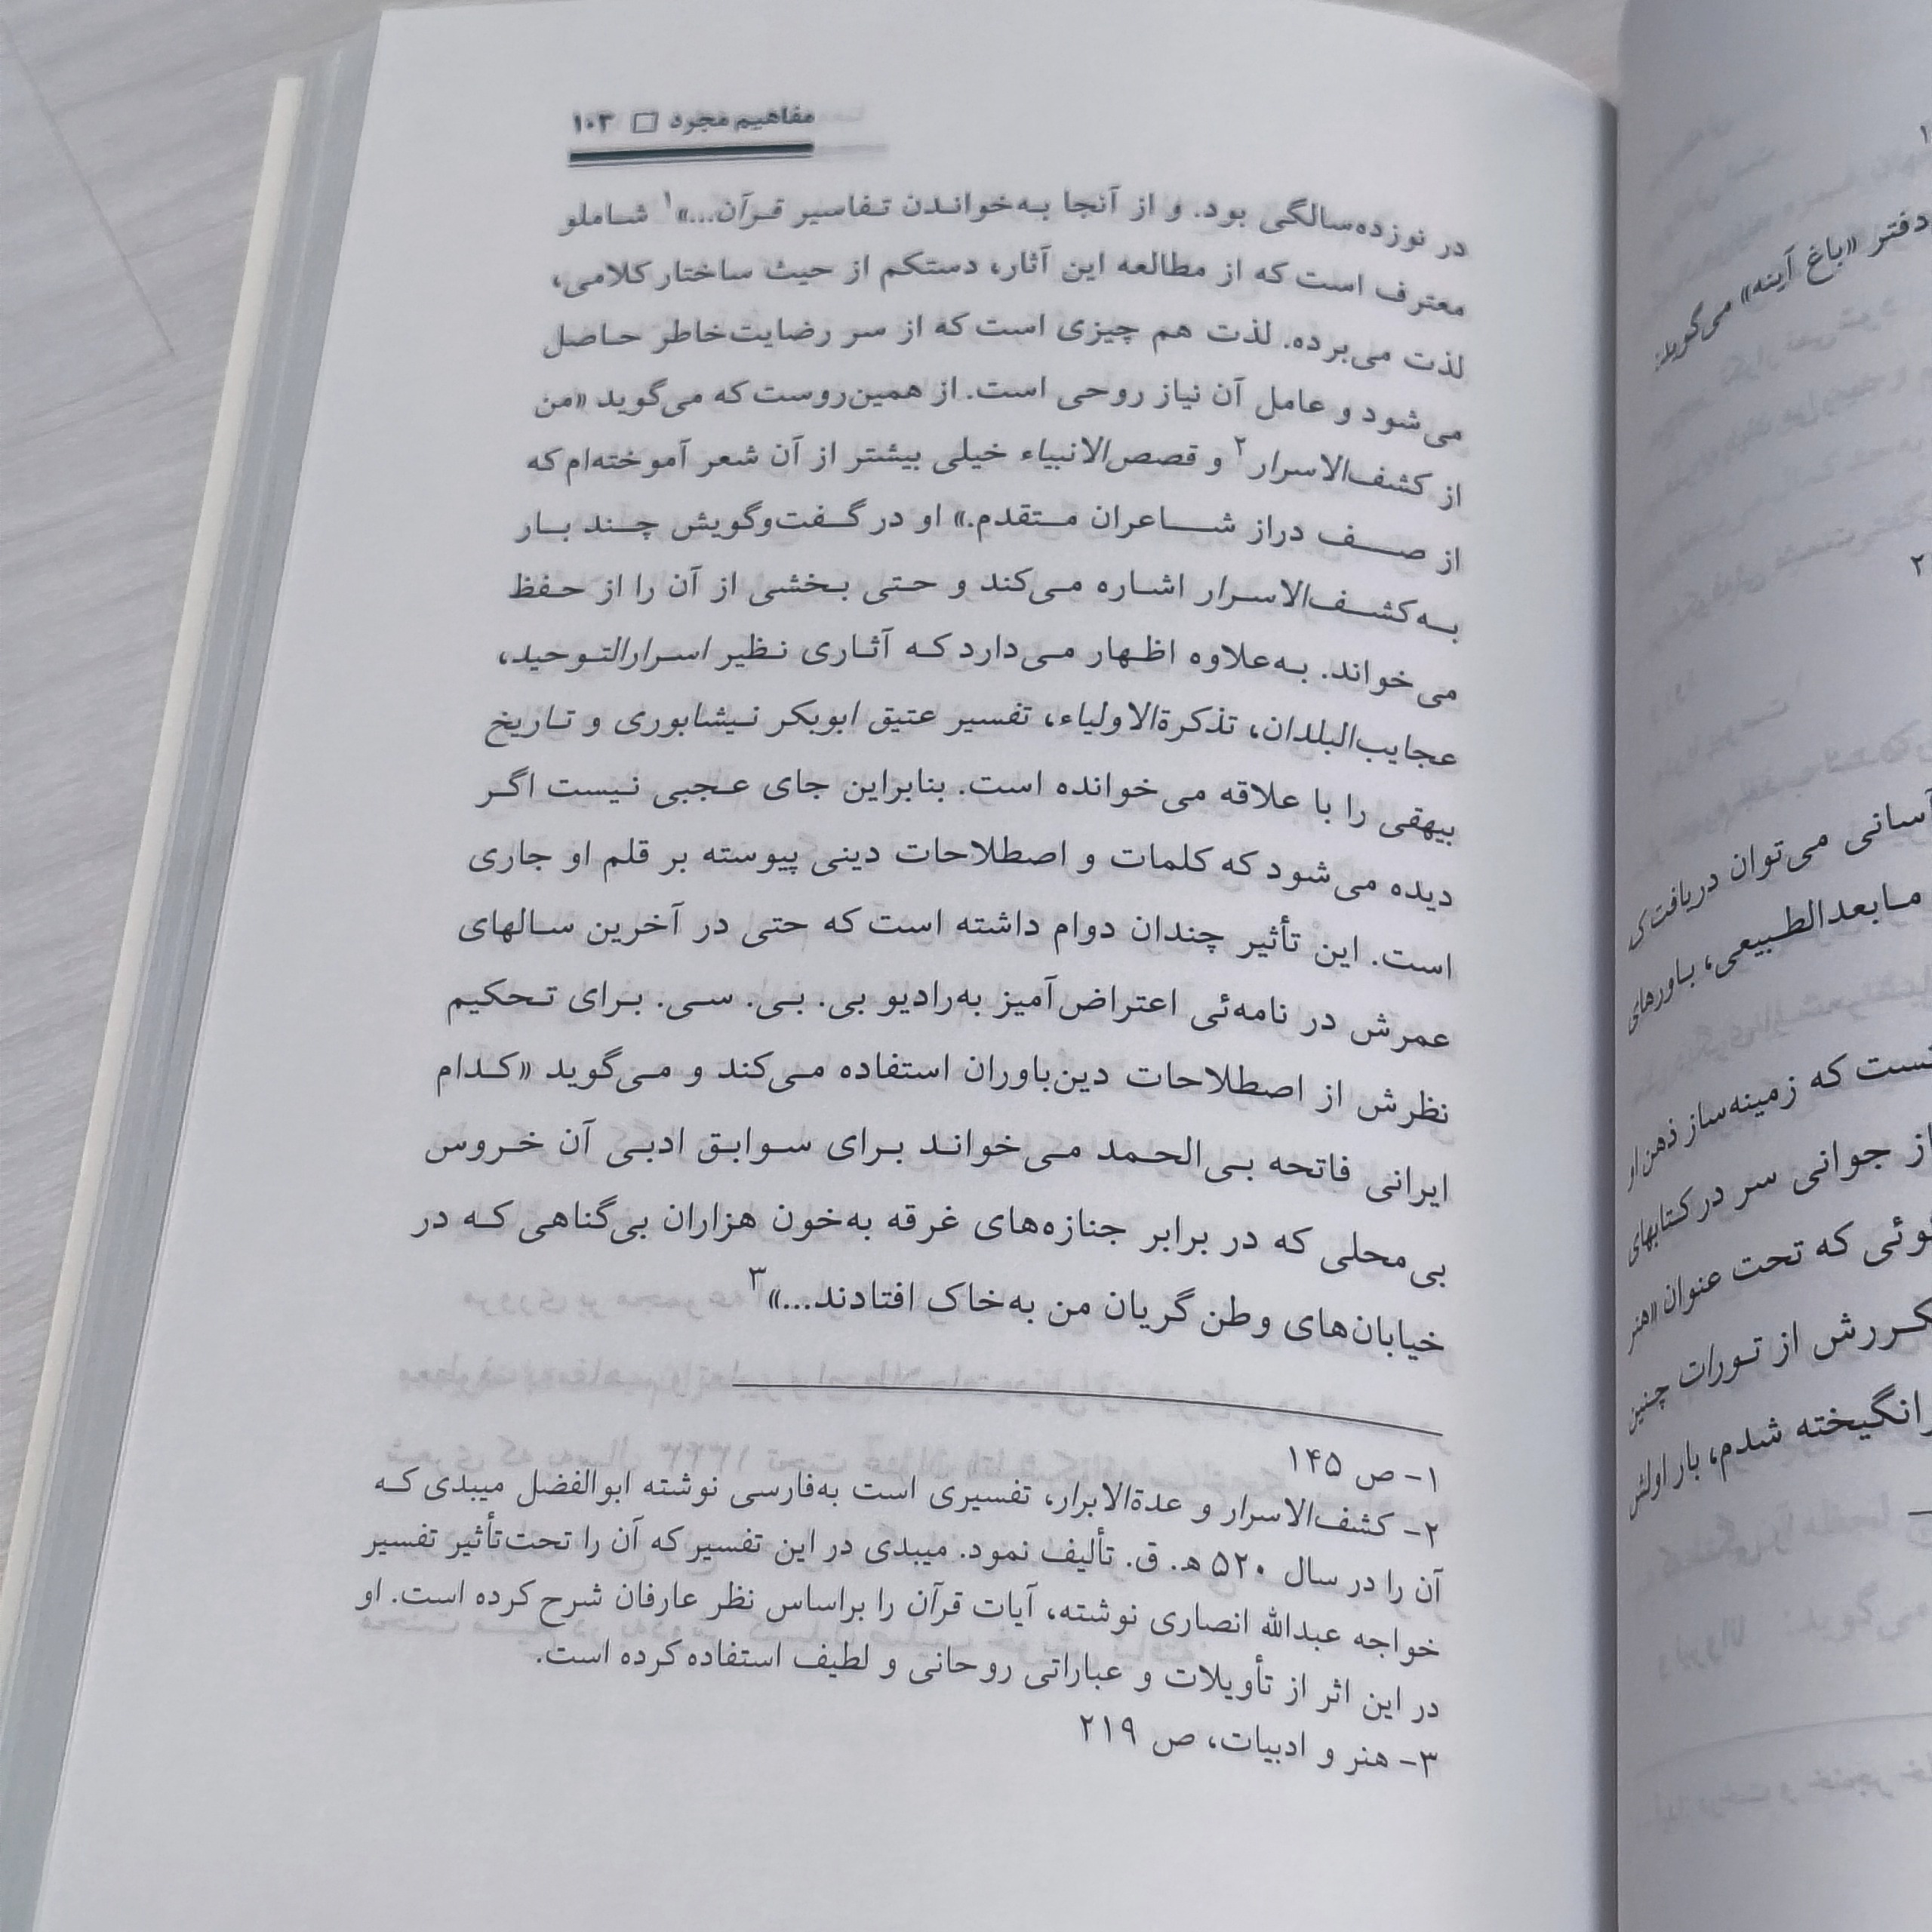 مفاهیم مجرد □ ۱۰۳
در نوزده‌سالگی بود. و از آنجا به‌خواندن تفاسیر قرآن...»۱ شاملو
معترف است که از مطالعه این آثار، دستکم از حیث ساختار کلامی،
لذت می‌برده. لذت هم چیزی است که از سر رضایت‌خاطر حاصل
می‌شود و عامل آن نیاز روحی است. از همین‌روست که می‌گوید «من
از کشف‌الاسرار۲ و قصص‌الانبیاء خیلی بیشتر از آن شعر آموخته‌ام که
از صف دراز شاعران متقدم.» او در گفت‌وگویش چند بار
به‌کشف‌الاسرار اشاره می‌کند و حتی بخشی از آن را از حفظ
می‌خواند. به‌علاوه اظهار می‌دارد که آثاری نظیر اسرارالتوحید،
عجایب‌البلدان، تذکرةالاولیاء، تفسیر عتیق ابوبکر نیشابوری و تاریخ
بیهقی را با علاقه می‌خوانده است. بنابراین جای عجبی نیست اگر
دیده می‌شود که کلمات و اصطلاحات دینی پیوسته بر قلم او جاری
است. این تأثیر چندان دوام داشته است که حتی در آخرین سالهای
عمرش در نامه‌ئی اعتراض‌آمیز به‌رادیو بی. بی. سی. برای تحکیم
نظرش از اصطلاحات دین‌باوران استفاده می‌کند و می‌گوید «کدام
ایرانی فاتحه بی‌الحمد می‌خواند برای سوابق ادبی آن خروس
بی‌محلی که در برابر جنازه‌های غرقه به‌خون هزاران بی‌گناهی که در
خیابان‌های وطن گریان من به‌خاک افتادند...»۳
۱- ص ۱۴۵
۲- کشف‌الاسرار و عدةالابرار، تفسیری است به‌فارسی نوشته ابوالفضل میبدی که
آن را در سال ۵۲۰ ه‍. ق. تألیف نمود. میبدی در این تفسیر که آن را تحت‌تأثیر تفسیر
خواجه عبدالله انصاری نوشته، آیات قرآن را براساس نظر عارفان شرح کرده است. او
در این اثر از تأویلات و عباراتی روحانی و لطیف استفاده کرده است.
۳- هنر و ادبیات، ص ۲۱۹
دفتر «باغ آینه» می‌گوید:
۲
آسانی می‌توان دریافت
مابعدالطبیعی، باورهای
که زمینه‌ساز ذهن او
از جوانی سر در کتابهای
که تحت عنوان «هنر
از تورات چنین
شدم، بار اولش